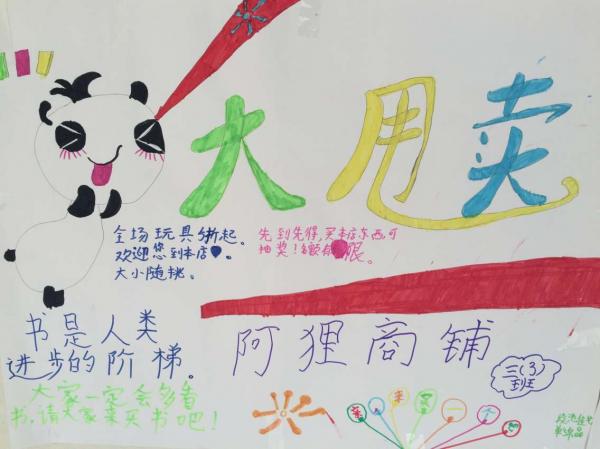 大甩卖
全场玩具 新起。
欢迎您到本店。
大小随挑。
先到先得,买本店东西,可
抽奖!名额有限。
书是人类
进步的阶梯。
阿狸商铺
三(3)
班
大家一定会多看
书,请大家来买书吧!
亲 来 买 一 个